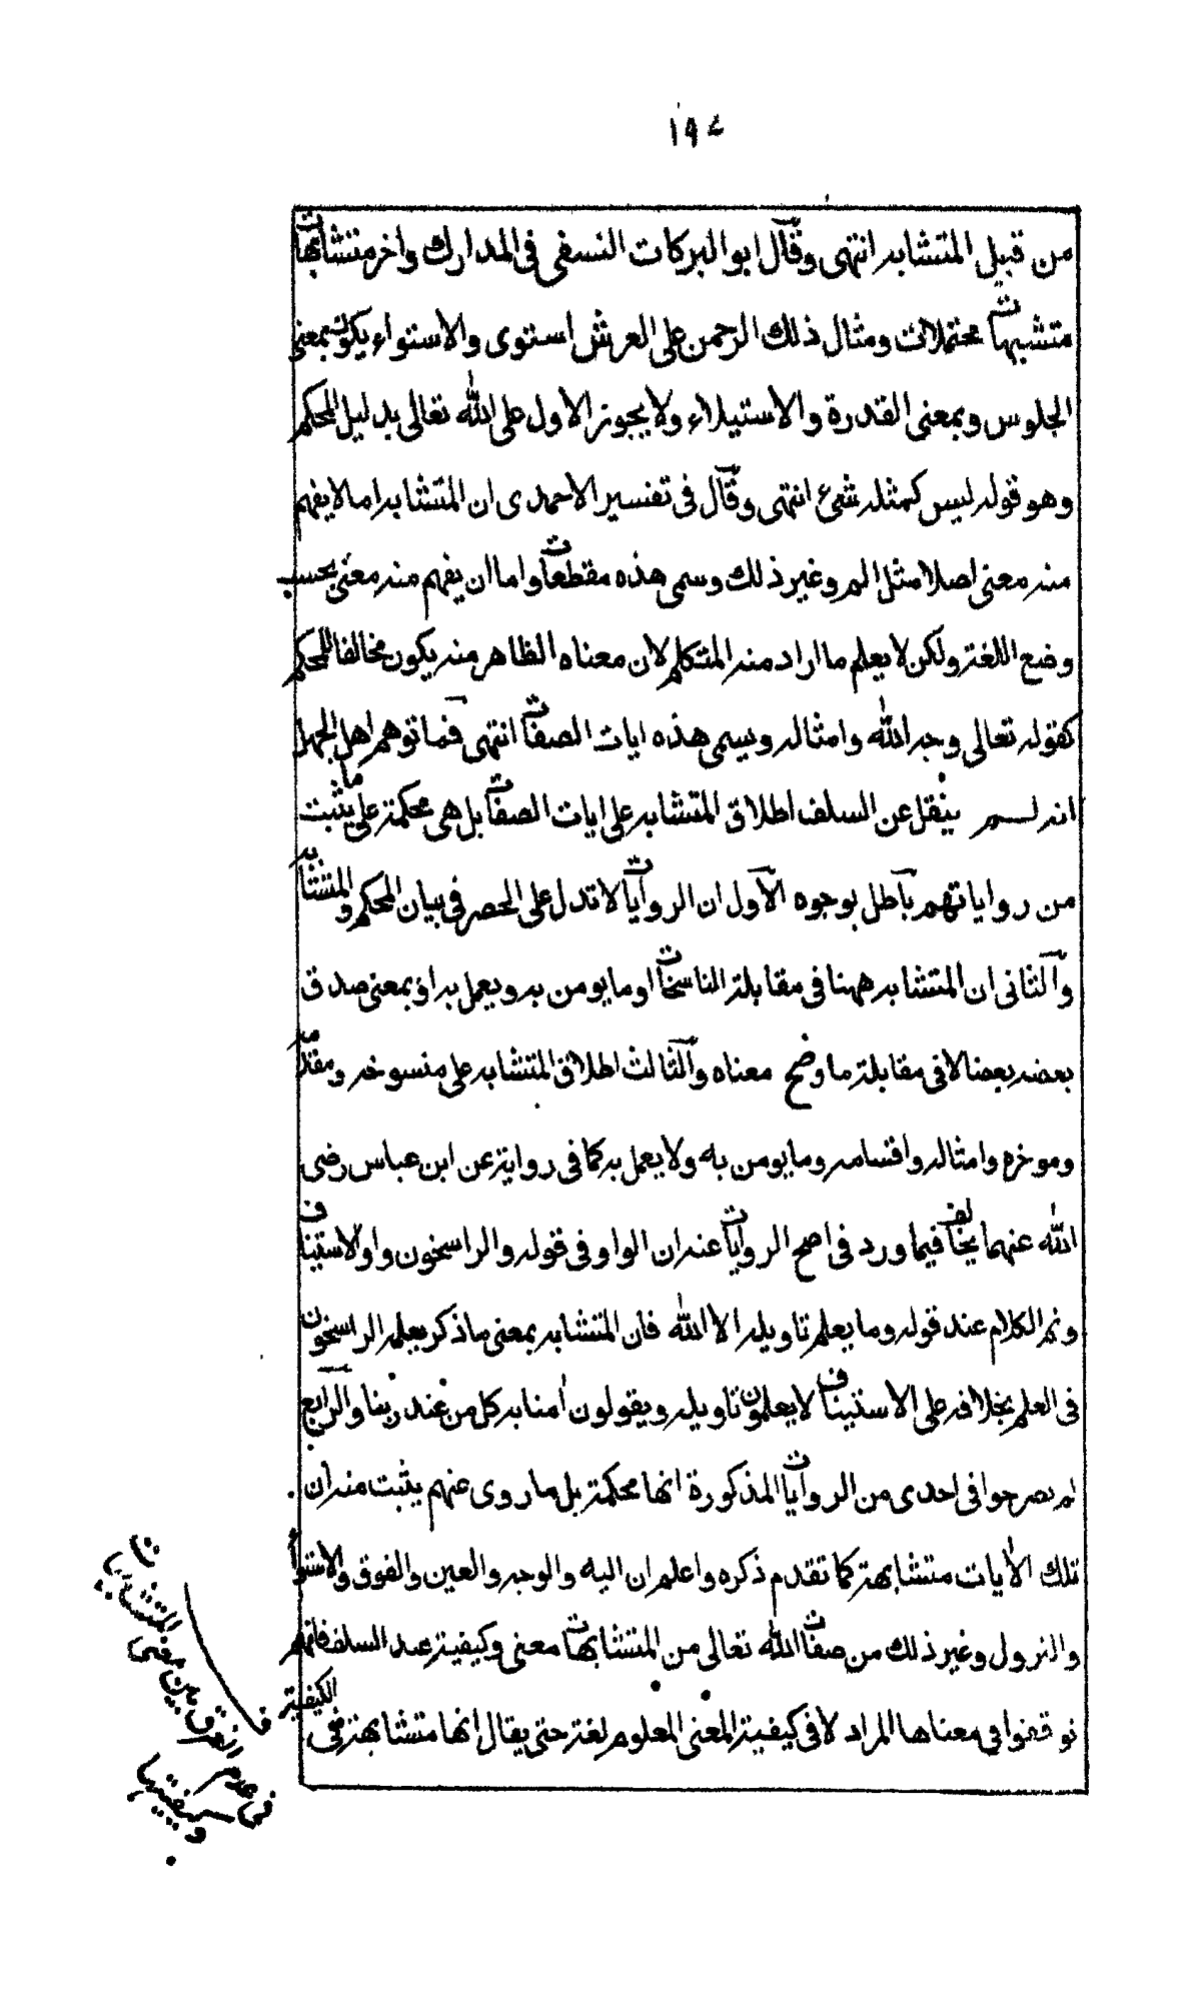 ١٩٤
من قبيل المتشابه انتهى وقال ابو البركات النسفي في المدارك واخر متشابهات
متشبهات محتملات ومثال ذلك الرحمن على العرش استوى والاستواء يكون بمعنى
الجلوس وبمعنى القدرة والاستيلاء ولا يجوز الاول على الله تعالى بدليل المحكم
وهو قوله ليس كمثله شىء انتهى وقال في تفسير الاحمدى ان المتشابه اما لا يفهم
منه معنى اصلا مثل الم وغير ذلك وسمى هذه مقطعات واما ان يفهم منه معنى بحسب
وضع اللغة ولكن لا يعلم ما اراد منه المتكلم لان معناه الظاهر منه يكون مخالفا للمحكم
كقوله تعالى وجه الله وامثاله ويسمى هذه ايات الصفات انتهى فما توهم اهل الجهل
انه لم ينقل عن السلف اطلاق المتشابه على ايات الصفات بل هى محكمة على ما يثبت
من رواياتهم باطل بوجوه الاول ان الروايات لا تدل على الحصر فى بيان المحكم والمتشابه
والثانى ان المتشابه ههنا فى مقابلة الناسخات او ما يومن به ويعمل به او بمعنى صدق
بعضه بعضا لا فى مقابلة ما وضح معناه والثالث اطلاق المتشابه على منسوخه ومقدمه
وموخره وامثاله واقسامه وما يومن به ولا يعمل به كما فى رواية عن ابن عباس رضى
الله عنهما يخالف فيما ورد فى اصح الروايات عنه ان الواو فى قوله والراسخون واو الاستيناف
وتم الكلام عند قوله وما يعلم تاويله الا الله فان المتشابه بمعنى ما ذكر يعلمه الراسخون
فى العلم بخلافه على الاستيناف لا يعلمون تاويله ويقولون امنا به كل من عند ربنا والرابع
لم يصرحوا فى احدى من الروايات المذكورة انها محكمة بل ما روى عنهم يثبت منه ان
تلك الايات متشابهة كما تقدم ذكره واعلم ان اليه والوجه والعين والفوق والاستواء
والنزول وغير ذلك من صفات الله تعالى من المتشابهات معنى وكيفية عند السلف فانهم
توقفوا في معناها المراد لا فى كيفية المعنى المعلوم لغة حتى يقال انها متشابهة فى الكيفية
ف
فى عدم الفرق بين معنى المتشابهات
وكيفيتها